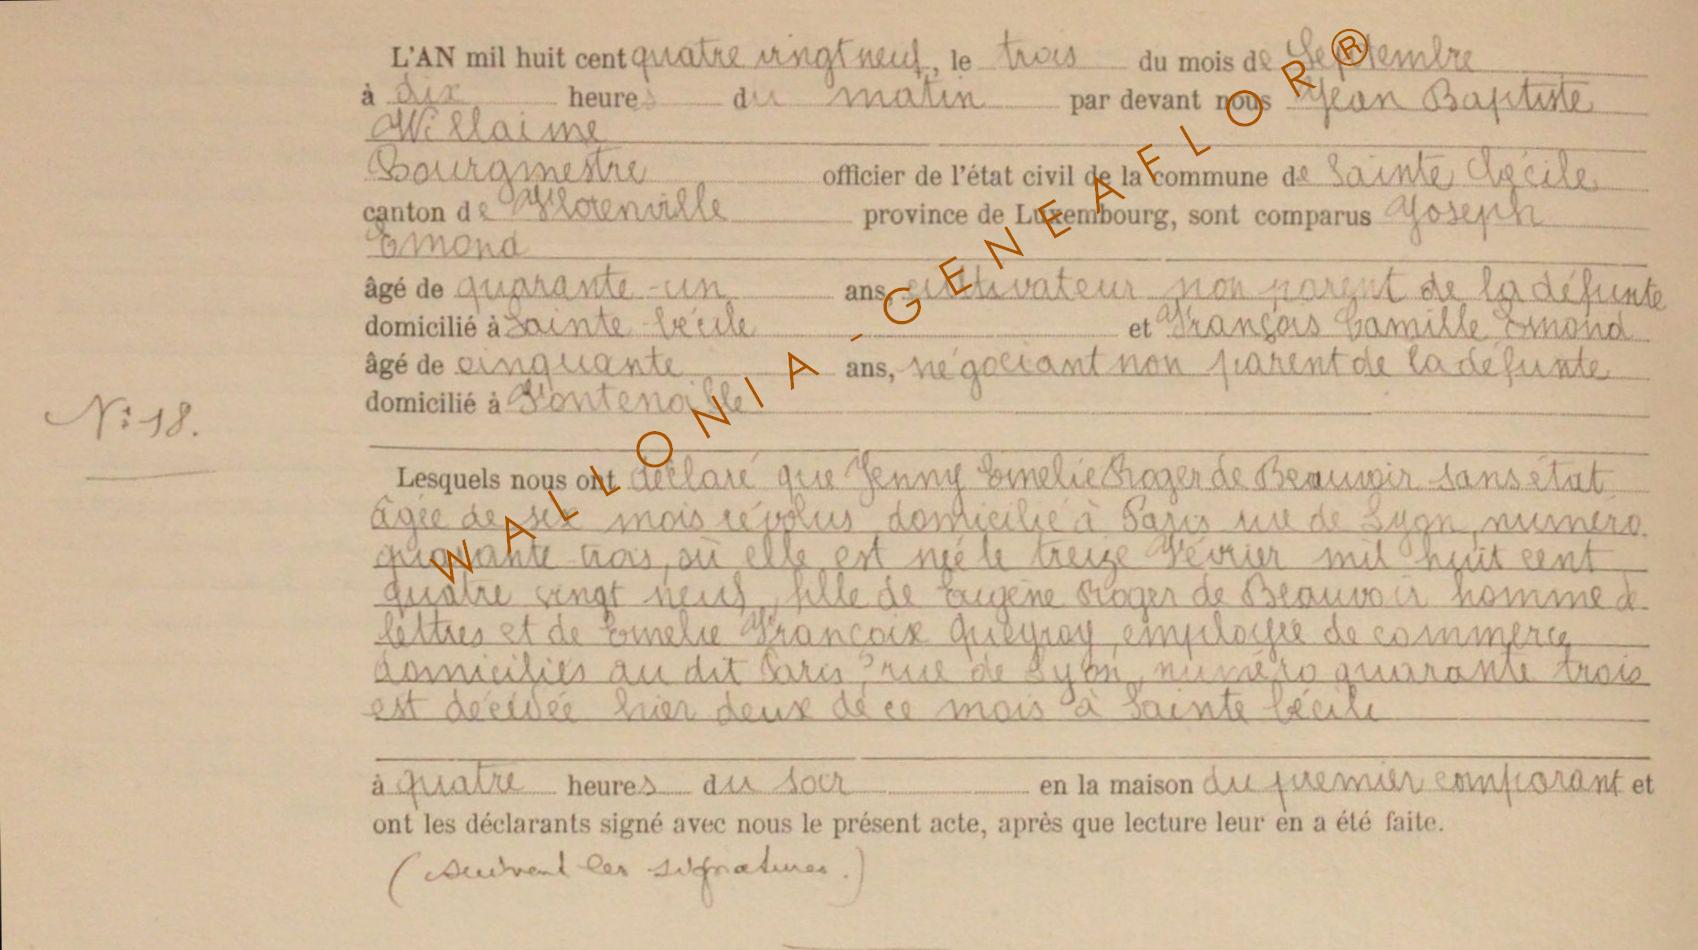 L'AN mil huit cent quatre vingt neuf, le trois du mois de Septembre
à dix heures du matin par devant nous Jean Baptiste
Willaime
Bourgmestre officier de l'état civil de la commune de Sainte Cécile
canton de Florenville province de Luxembourg, sont comparus Joseph
Emond
âgé de quarante-un ans, cultivateur non parent de la défunte
domicilié à Sainte Cécile et François Camille Emond
âgé de cinquante ans, négociant non parent de la défunte
domicilié à Fontenoille
N: 18.
Lesquels nous ont déclaré que Jenny Emelie Roger de Beauvoir sans état
âgée de six mois révolus, domicilié à Paris rue de Lyon, numéro
quarante trois, où elle est née le treize Février mil huit cent
quatre vingt neuf, fille de Eugène Roger de Beauvoir homme de
lettres et de Emelie Françoise Queyroy, employée de commerce
domiciliés au dit Paris, rue de Lyon, numéro quarante trois
est décédée hier deux de ce mois à Sainte Cécile
à quatre heures du soir en la maison du premier comparant et
ont les déclarants signé avec nous le présent acte, après que lecture leur en a été faite.
(suivent les signatures.)
WALLONIA-GENEAFLOR®